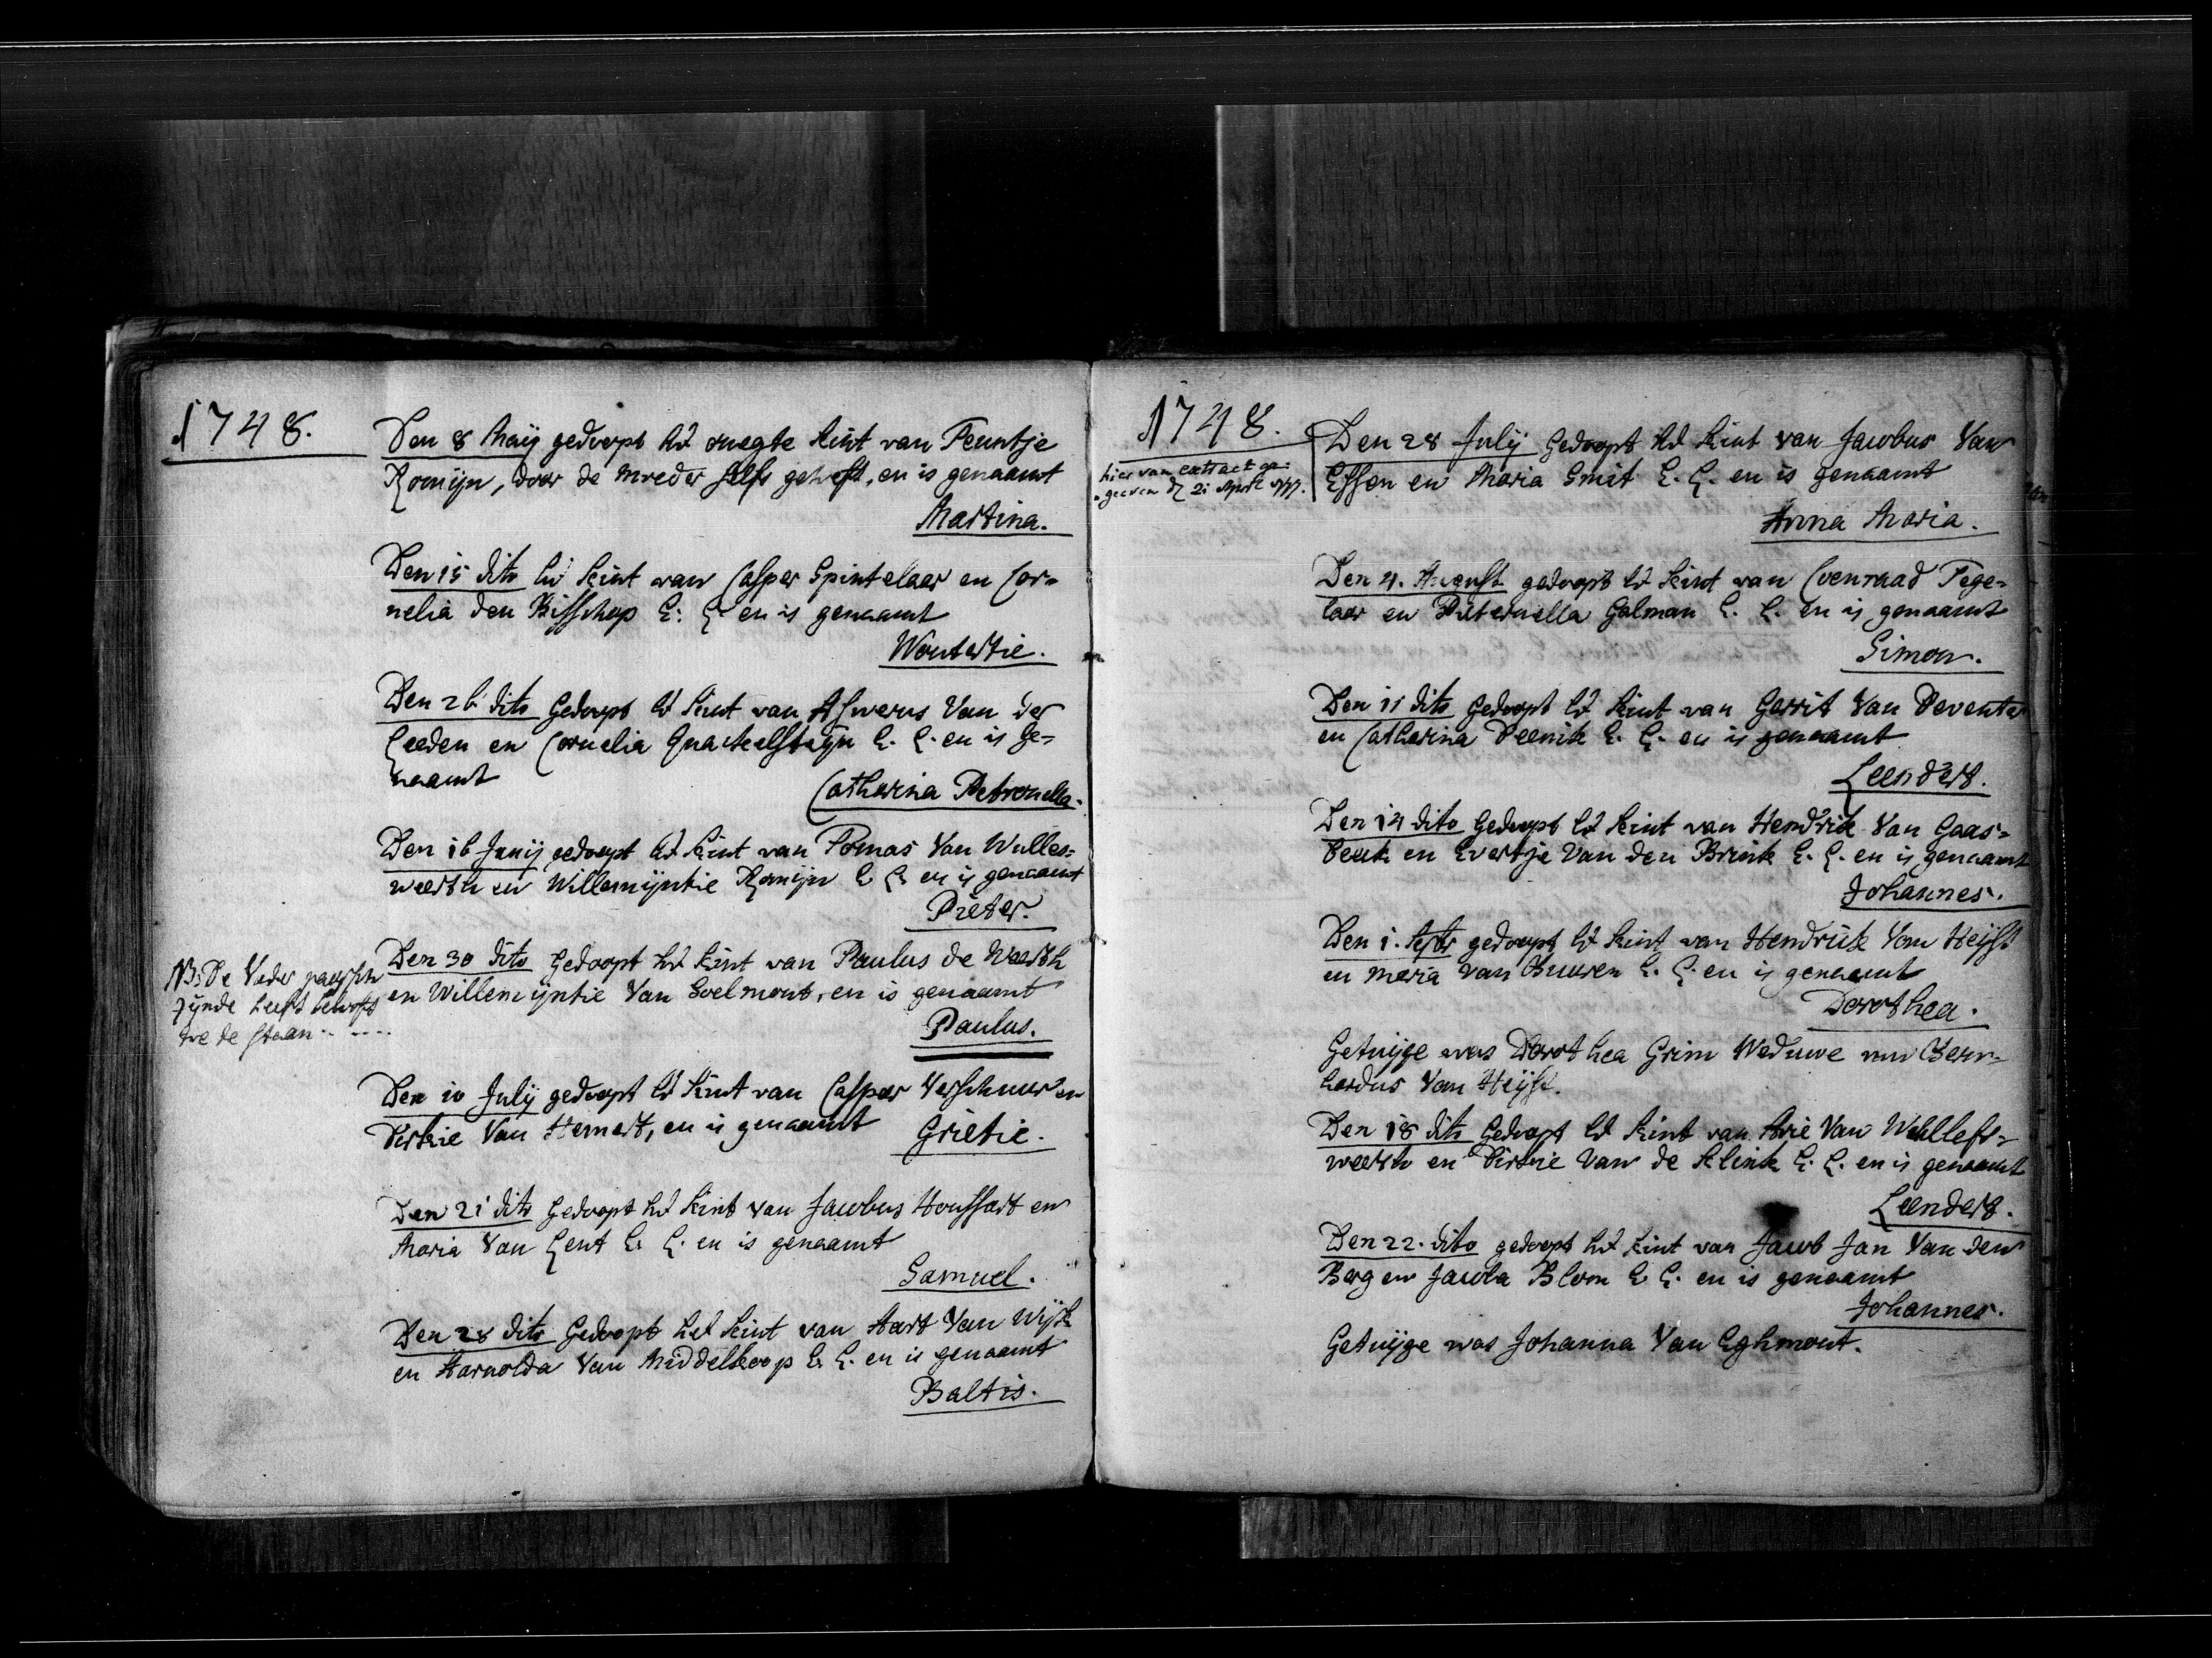 1748.
Den 8 Maij gedoopt het onegte kint van Teuntje
Romijn, door de moeder selfs geheft, en is genaamt
Martina.
Den 15 dito het kint van Casper Spintelaar en Cor=
nelia den Bisschop E: L. en is genaamt
Woutertie.
Den 26 dito Gedoopt het kint van Aswerus Van der
Leeden en Cornelia Quackelsteijn E. L. en is Ge=
naamt
Catharina Petronella.
Den 16 Junij gedoopt het kint van Tomas Van Wulles=
weerth en Willemijntie Romijn E L. en is genaamt
Pieter.
NB: De Vader paapsch
zijnde heeft belooft
toe te staan .. ....
Den 30 dito Gedoopt het kint van Paulus de Weerth
en Willemijntie Van Soelmont, en is genaamt
Paulus.
Den 10 Julij gedoopt het kint van Casper Verschuur en
Dirkie Van Hemert, en is genaamt Grietie.
Den 21 dito Gedoopt het kint van Jacobus Houssart en
Maria Van Gent E. L. en is genaamt
Samuel.
Den 28 dito Gedoopt het kint van Aart Van Wijk
en Aarnolda Van Middelkoop E. L. en is genaamt
Baltis.
1748.
hier van extract ge=
=geeven den 21 April
Den 28 Julij Gedoopt het kint van Jacobus Van
Essen en Maria Smit E. L. en is genaamt
Anna Maria.
Den 4. August gedoopt het kint van Coenraad Tege=
laar en Pieternella Galman E. L. en is genaamt
Simon.
Den 11 dito Gedoopt het kint van Gerrit Van Deventer
en Catharina Peenik E. L. en is genaamt
Leendert.
Den 14 dito Gedoopt het kint van Hendrik Van Gaas=
beek en Evertje Van den Brink E. L. en is genaamt
Johannes.
Den 1. Septr gedoopt het kint van Hendrik Van Heijst
en Maria van Buuren E. L. en is genaamt
Dorothea.
Getuijge was Dorothea Grim Weduwe van Bern=
hardus Van Heijst.
Den 18 dito Gedoopt het kint van Arie Van Wullefs=
weerth en Dirkie Van de Klink E. L. en is genaamt
Leendert.
Den 22. dito gedoopt het kint van Jacob Jan Van den
Berg en Jacoba Blom E L. en is genaamt
Johannes.
Getuijge was Johanna Van Eghmont.